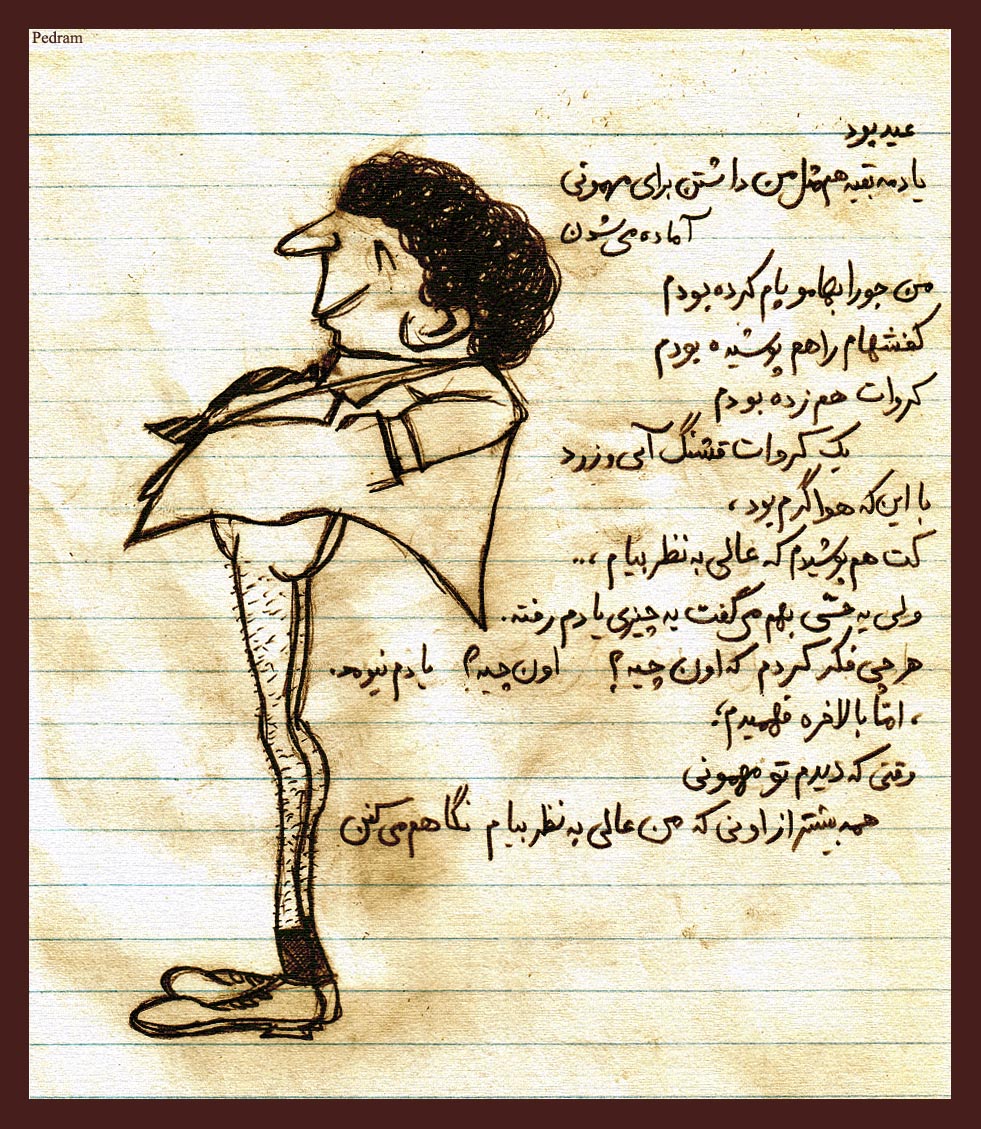 Pedram
عید بود
یادمه بقیه هم مثل من داشتن برای مهمونی
آماده می شدن
من جورابهامو پام کرده بودم
کفشهام را هم پوشیده بودم
کروات هم زده بودم
یک کروات قشنگ آبی و زرد
با این که هوا گرم بود،
کت هم پوشیدم که عالی به نظر بیام ،..
ولی یه حسی بهم می گفت یه چیزی یادم رفته.
هر چی فکر کردم که اون چیه؟ اون چیه؟ یادم نیومد.
، امّا بالاخره فهمیدم،
وقتی که دیدم تو مهمونی
همه بیشتر از اونی که من عالی به نظر بیام نگاهم می کنن